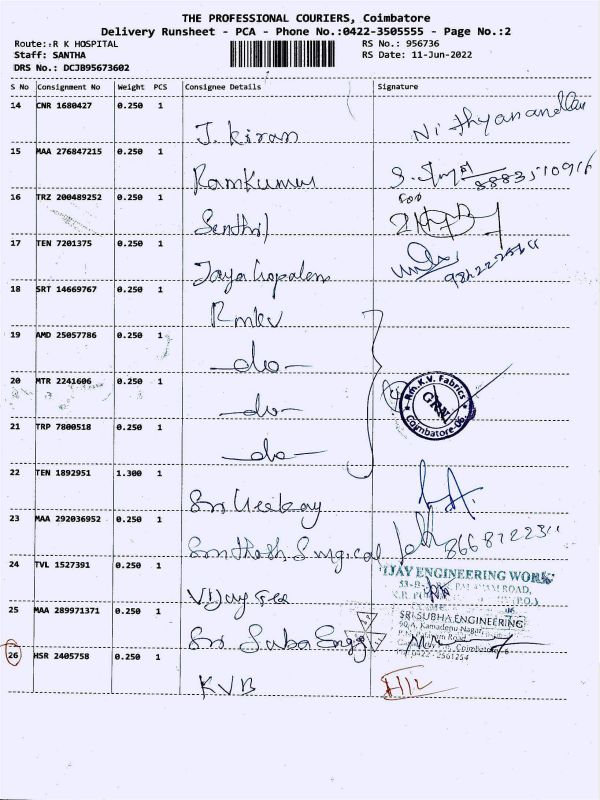 THE PROFESSIONAL COURIERS, Coimbatore
Delivery Runsheet - PCA - Phone No.:0422-3505555 - Page No.:2
Route:: R K HOSPITAL
Staff: SANTHA
DRS No.: DCJB95673602
RS No.: 956736
RS Date: 11-Jun-2022
S No Consignment No Weight PCS Consignee Details Signature
14 CNR 1680427 0.250 1
J. Kiran Nithyanandan
15 MAA 276847215 0.250 1
Ramkumar 8883510916
16 TRZ 200489252 0.250 1
Senthil for
17 TEN 7201375 0.250 1
Jaya Gopalan
18 SRT 14669767 0.250 1
Rmkv
19 AMD 25057786 0.250 1
-do-
20 MTR 2241606 0.250 1
-do-
Rm.K.V. Fabrics
GRN
Coimbatore-06.
21 TRP 7800518 0.250 1
-do-
22 TEN 1892951 1.300 1
23 MAA 292036952 0.250 1
Santhosh Surgical
24 TVL 1527391 0.250 1
VIJAY ENGINEERING WORK
53-B
ROAD,
25 MAA 289971371 0.250 1
Sri Suba Engg
SRI SUBHA ENGINEERING
90-A, Kamadenu Nagar,
Road
Coimbatore-6
0422 - 2561254
26 HSR 2405758 0.250 1
KVB